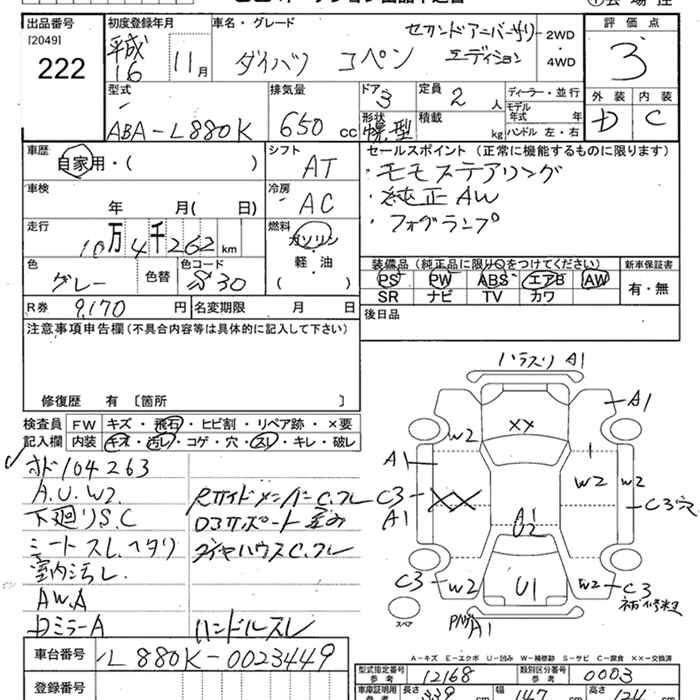 出品番号
[2049]
222
初度登録年月
平成
16
11月
車名・グレード
ダイハツ コペン
セカンドアニバーサリー
エディション
2WD
・
4WD
評価点
3
外装 内装
D C
型式
ABA-L880K
排気量
650cc
ドア
3
形状
幌型
定員
2人
積載
kg
ディーラー・並行
モデル
年式 年
ハンドル 左・右
車歴
自家用・( )
シフト
AT
セールスポイント(正常に機能するものに限ります)
・モモステアリング
・純正AW
・フォグランプ
車検
年 月( 日)
冷房
AC
走行
10万4千262km
燃料
ガソリン
軽・油
( )
色
グレー
色替
色コード
S30
装備品(純正品に限り○をつけてください)
PS PW ABS エアB AW
SR ナビ TV カワ
新車保証書
有・無
R券
9,170円
名変期限 月 日
後日品
注意事項申告欄(不具合内容等は具体的に記入して下さい)
修復歴 有〔箇所 〕
検査員
記入欄
FW キズ・飛石・ヒビ割・リペア跡・×要
内装 キズ・汚レ・コゲ・穴・スレ・キレ・破レ
オド104263
A.U.W2.
下廻りS.C
シートスレ.ヘタリ
室内汚レ.
AW.A
DミラーA
RサイドメンバーC.フレ
タイヤハウスC.フレ
ハンドルスレ
ハラスリ A1
A1
XX
W2
A1
C3
A1
W2
W2
C3穴
A1
U2
C3
W2
U1
W2
C3
A1
スペア
A-キズ E-エクボ U-凹み W-補修跡 S-サビ C-腐食 ××-交換済
車台番号
L880K-0023449
登録番号
型式指定番号
参考
12168
類別区分番号
参考
0003
車庫証明用
長さ
幅
147
cm
高さ
124
cm